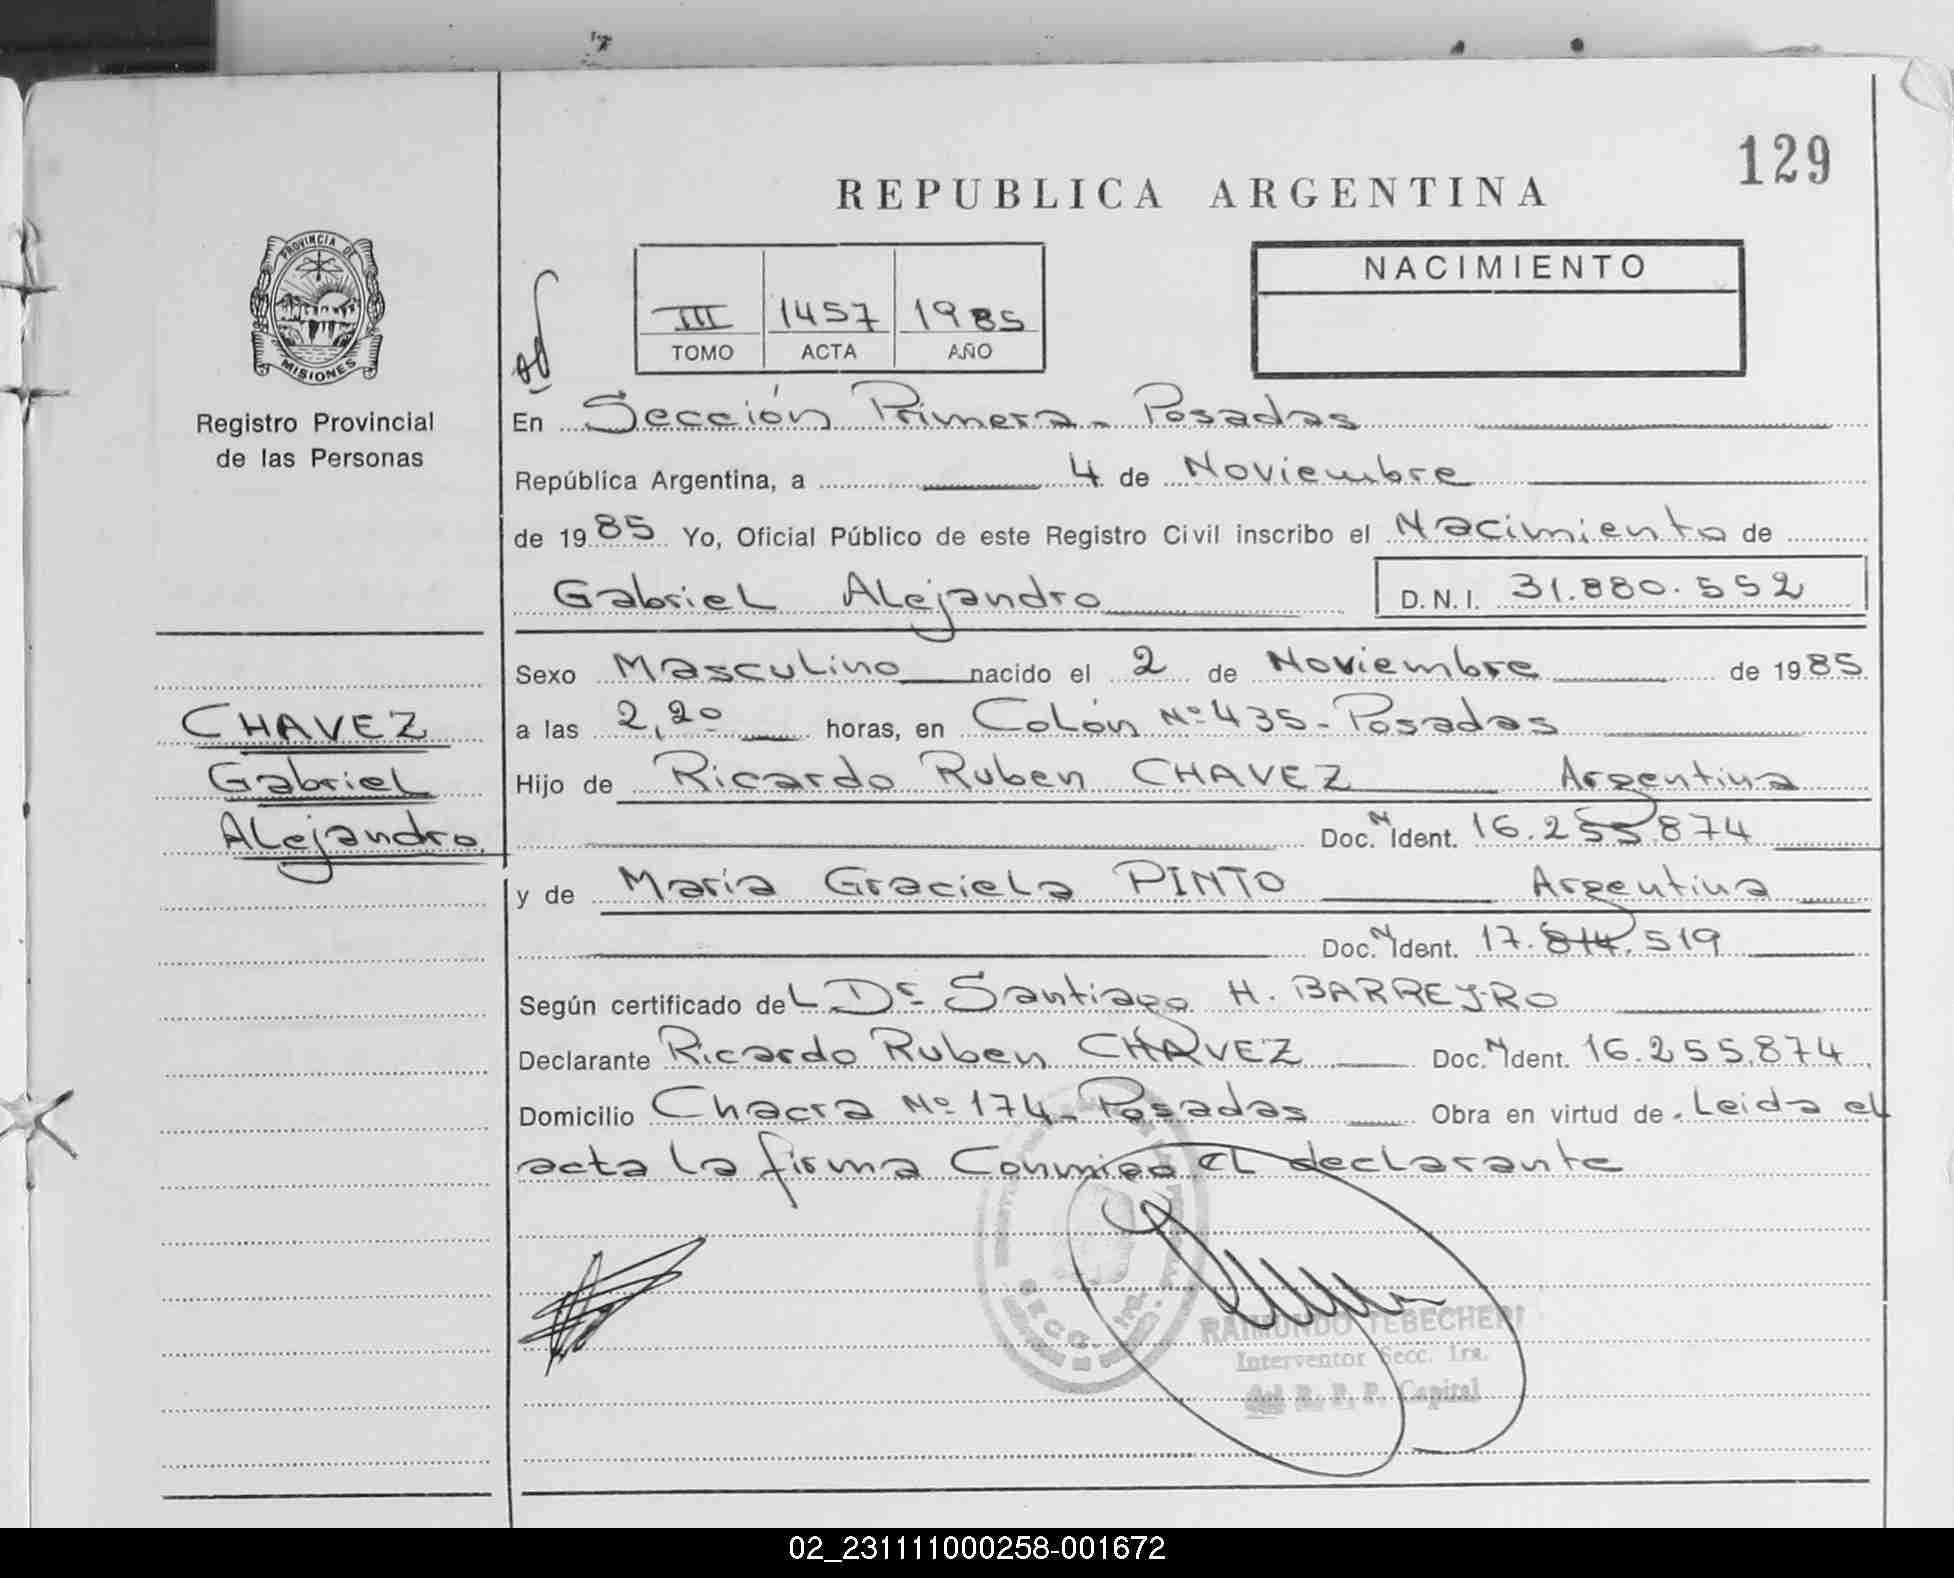 129
REPUBLICA ARGENTINA
PROVINCIA DE
MISIONES
Registro Provincial
de las Personas
III 1457 1985
TOMO ACTA AÑO
NACIMIENTO
En Sección Primera - Posadas
República Argentina, a 4 de Noviembre
de 1985 Yo, Oficial Público de este Registro Civil inscribo el Nacimiento de
Gabriel Alejandro D.N.I. 31.880.552
Sexo Masculino nacido el 2 de Noviembre de 1985
CHAVEZ
Gabriel
Alejandro
a las 2,20 horas, en Colón Nº 435 - Posadas
Hijo de Ricardo Ruben CHAVEZ Argentina
Doc. N Ident. 16.255.874
y de María Graciela PINTO Argentina
Doc. N Ident. 17.814.519
Según certificado del Dr Santiago H. BARREYRO
Declarante Ricardo Ruben CHAVEZ Doc. N Ident. 16.255.874
Domicilio Chacra Nº 174 - Posadas Obra en virtud de Leida el
acta la firma Conmigo el declarante
SECC. 1ra.
RAIMUNDO TEBECHERI
Interventor Secc. 1ra.
del R. P. P. Capital
02_231111000258-001672